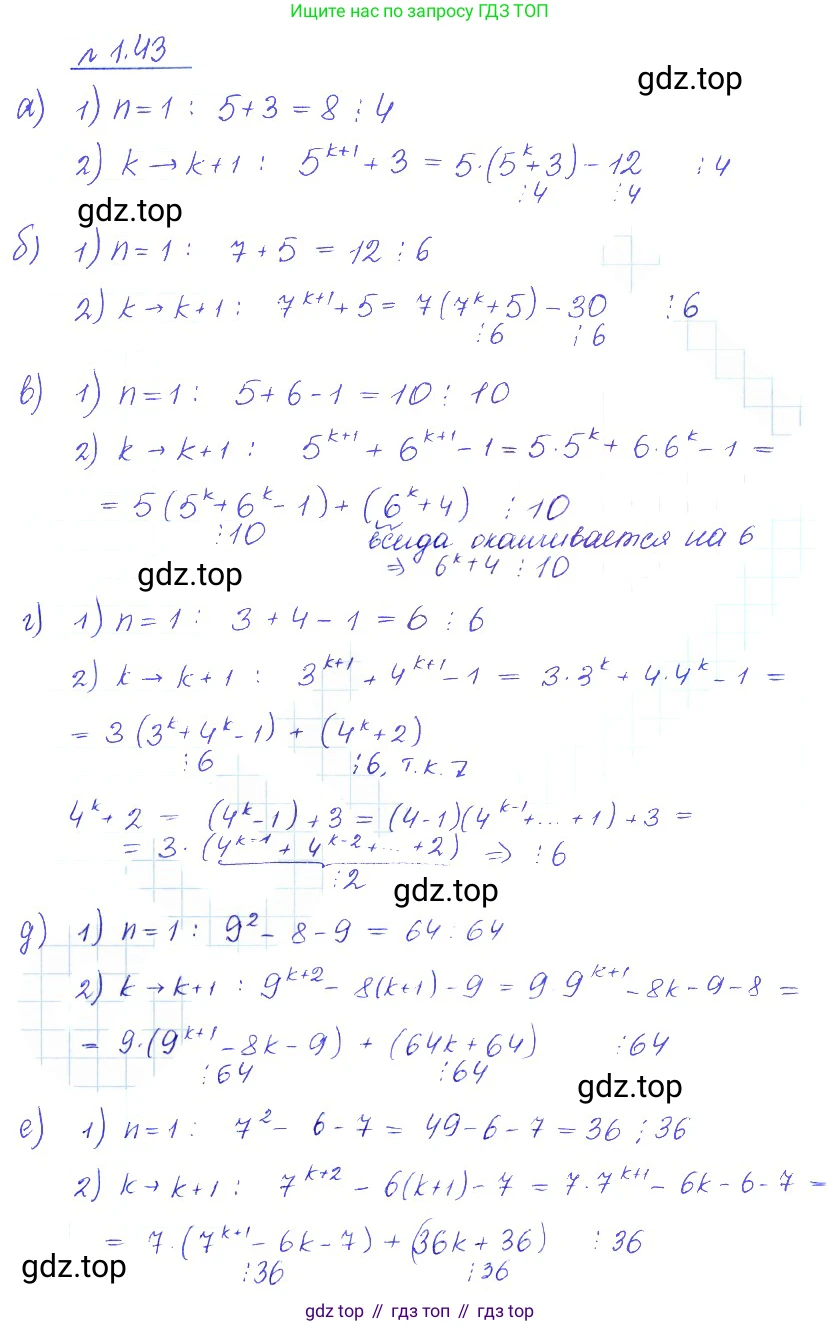 Ищите нас по запросу ГДЗ ТОП
№ 1.43
gdz.top
а) 1) n=1 : 5+3 = 8 ⋮ 4
2) k → k+1 : 5^{k+1} + 3 = 5·(5^k+3) – 12 ⋮ 4
⋮ 4 ⋮ 4
gdz.top
б) 1) n=1 : 7+5 = 12 ⋮ 6
2) k → k+1 : 7^{k+1} + 5 = 7(7^k+5) – 30 ⋮ 6
⋮ 6 ⋮ 6
в) 1) n=1 : 5+6-1 = 10 ⋮ 10
2) k → k+1 : 5^{k+1} + 6^{k+1} – 1 = 5·5^k + 6·6^k – 1 =
= 5(5^k+6^k-1) + (6^k+4) ⋮ 10
⋮ 10 всегда оканчивается на 6
⇒ 6^k+4 ⋮ 10
gdz.top
г) 1) n=1 : 3+4-1 = 6 ⋮ 6
2) k → k+1 : 3^{k+1} + 4^{k+1} – 1 = 3·3^k + 4·4^k – 1 =
= 3(3^k+4^k-1) + (4^k+2)
⋮ 6 ⋮ 6, т.к. 7
4^k + 2 = (4^k-1) + 3 = (4-1)(4^{k-1}+...+1) + 3 =
= 3·(4^{k-1} + 4^{k-2}+...+2) ⇒ ⋮ 6
⋮ 2
gdz.top
д) 1) n=1 : 9^2 – 8 – 9 = 64 ⋮ 64
2) k → k+1 : 9^{k+2} – 8(k+1) – 9 = 9·9^{k+1} – 8k – 9 – 8 =
= 9·(9^{k+1} – 8k – 9) + (64k + 64) ⋮ 64
⋮ 64 ⋮ 64
gdz.top
е) 1) n=1 : 7^2 – 6 – 7 = 49 – 6 – 7 = 36 ⋮ 36
2) k → k+1 : 7^{k+2} – 6(k+1) – 7 = 7·7^{k+1} – 6k – 6 – 7 =
= 7·(7^{k+1} – 6k – 7) + (36k + 36) ⋮ 36
gdz.top
⋮ 36 ⋮ 36
gdz top // гдз топ // gdz top